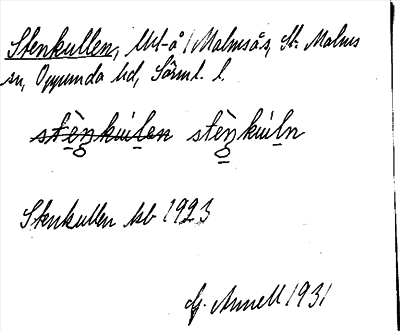 Stenkullen, lht-å Malmsås, St. Malms
sn, Oppunda hd, Sörml. l.
stènkulen stènkuln
Stenkullen kb 1923
G. Annell 1931